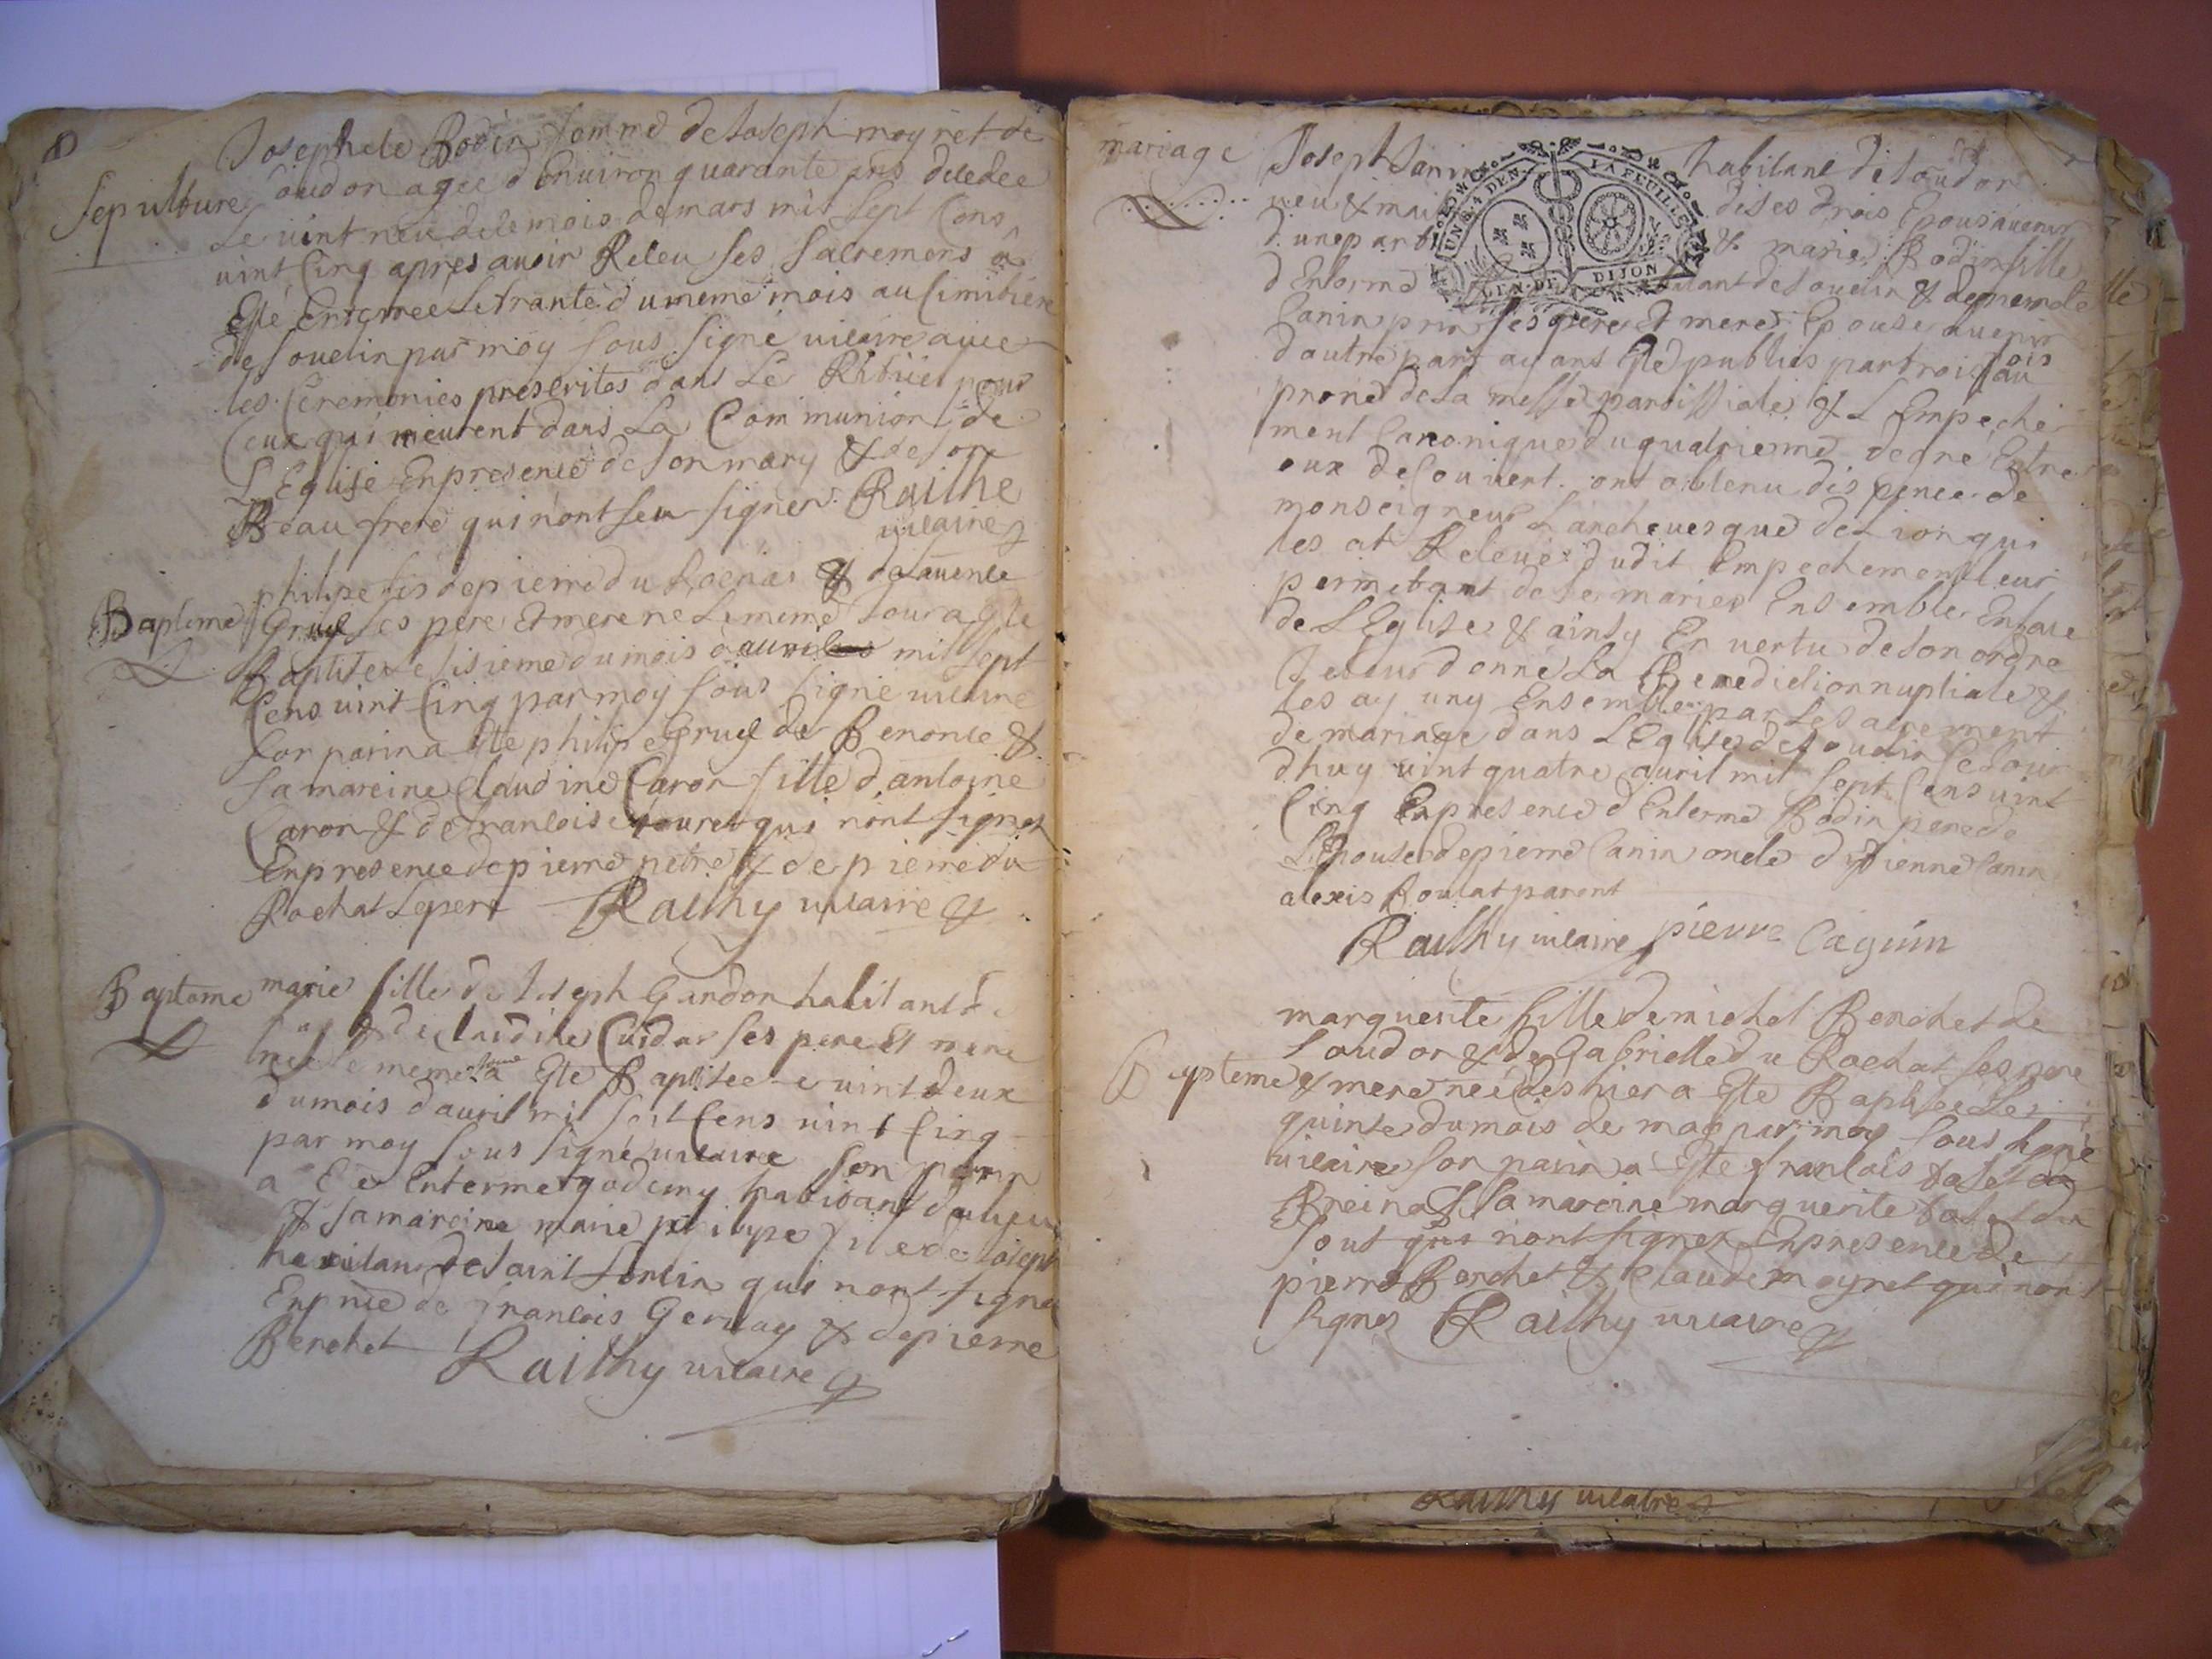 Sepulture
Josephete Bodin femme de Joseph moyret de
soudon agee d Environ quarante ans decedee
Le vint neu de le mois de mars mil sept Cens
vint Cinq apres avoir Receu ses sacremens a
Esté Enterree Le trante du meme mois au Cimitiere
de souclin par moy sous signé vicaire avec
les Ceremonies prescrites dans Le Rituel pour
Ceux qui meurent dans La Communion de
L Eglise En presence de son mary & de son
Beau frere qui nont seu signer Railhe
vicaire
Bapteme
philipe fis de pierre du Rochas & de
Gruel ses pere Et mere ne Le meme Jour a este
Baptise Le sisieme du mois d auril mil sept
Cens vint Cinq par moy sous signé vicaire
son parin a este philipe Gruel de Benonce &
sa mareine Claudine Caron fille d antoine
Caron & de francoise qui nont signes
En presence de pierre petre & de pierre du
Rochat Le pere Railhy vicaire
Bapteme
marie fille de Joseph Gandon habitant
& de Claudine Cuidar ses pere Et mere
nee Le meme Jour a Este Baptisee Le vint deux
du mois d auril mil sept Cens vint Cinq
par moy sous signé vicaire son parin
a Enterme godemy habitant
& sa mareine marie philipe fille de Joseph
de saint sorlin qui nont signes
En pnce de francois Gervay & de pierre
Berchet Railhy vicaire
mariage
Joseph Janin habitant de soudon
de ses drois Epous avenir
d une part & marie Bodin fille
d Enterme habitant de souclin &
Canin ses pere Et mere Epouse avenir
d autre part ayant Este publies par trois fois au
prone de La messe paroissiale & L Empeche
ment Canonique du quatrieme degre Entre
eux decouvert ont obtenu dispence de
monseigneur L archevesque de Lion qui
les at Relevé dudit Empechement leur
permetant de se marier Ensemble En face
de L Eglise & ainsy En vertu de son ordre
Je Leur donné La Benediction nuptiale &
les ay uny Ensemble par Le sacrement
de mariage dans L Eglise de souclin Ce Jour
d huy vint quatre auril mil sept Cens vint
Cinq En presence d Enterme Bodin pere de
L Epouse de pierre Canin oncle d Estienne Canin
alexis Roulat parent
Railhy vicaire pierre Cagnin
UN S. 4 DEN. LA FEUILLE
GEN. DE DIJON
Bapteme
marguerite fille de michel Berchet de
soudon & de Gabrielle du Rochat ses pere
& mere nee des hier a Este Baptisee Le
quinse du mois de may par moy sous signé
vicaire son parin a Este francois
& sa mareine marguerite
qui nont signes En presence de
pierre Berchet & Claude moyret qui nont
signes Railhy vicaire
Railhy vicaire